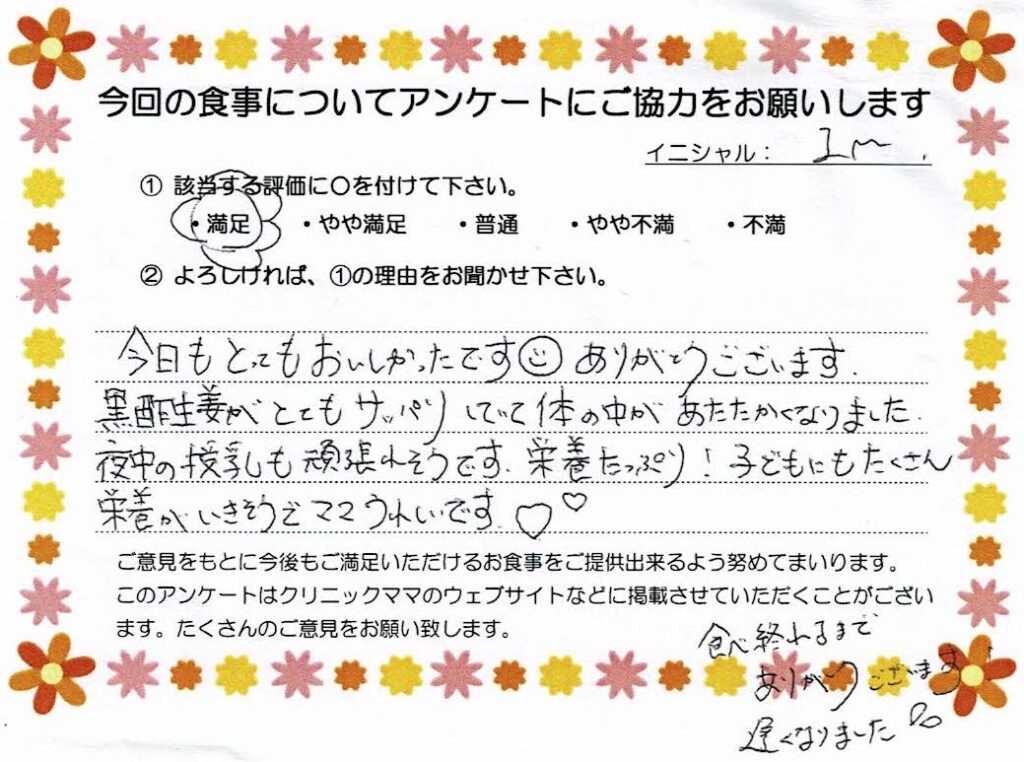 今回の食事についてアンケートにご協力をお願いします
イニシャル：
① 該当する評価に〇を付けて下さい。
・満足 ・やや満足 ・普通 ・やや不満 ・不満
② よろしければ、①の理由をお聞かせ下さい。
今日もとってもおいしかったです ありがとうございます.
黒酢生姜がとてもサッパリしていて体の中があたたかくなりました.
夜中の授乳も頑張れそうです. 栄養たっぷり！子どもにもたくさん
栄養がいきそうでママうれしいです.♡♡
ご意見をもとに今後もご満足いただけるお食事をご提供出来るよう努めてまいります。
このアンケートはクリニックママのウェブサイトなどに掲載させていただくことがござい
ます。たくさんのご意見をお願い致します。
食べ終わるまで
ありがとうございます！
遅くなりました